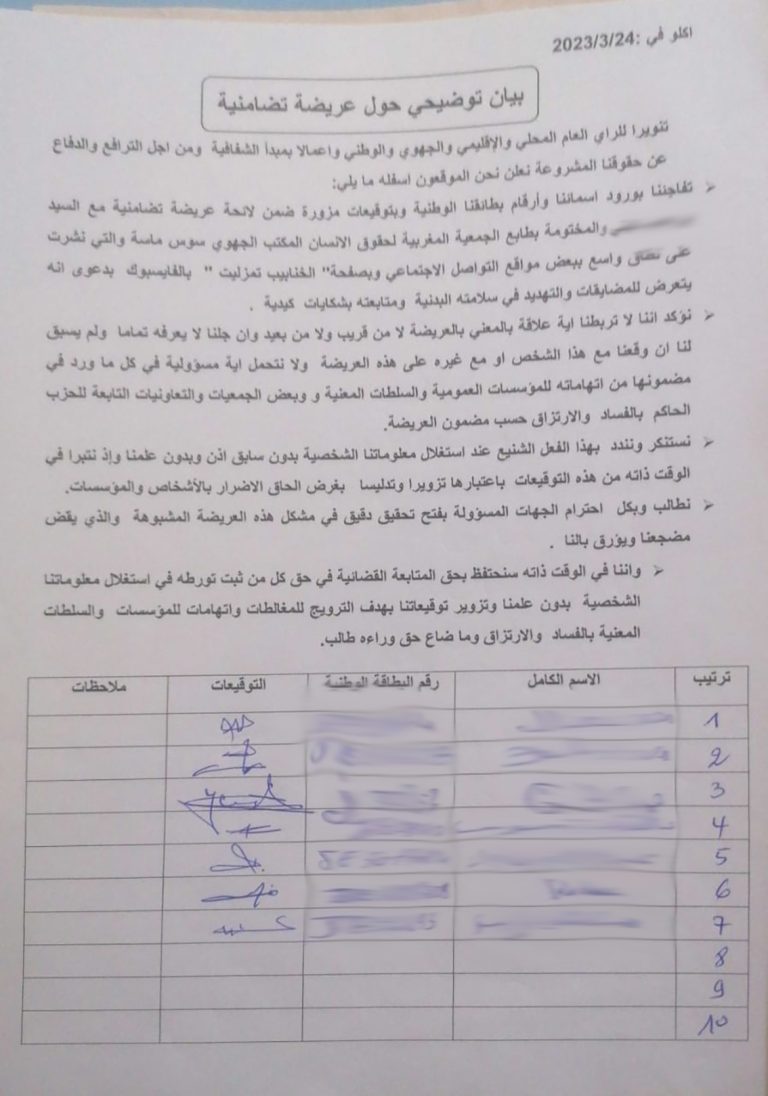 اكلو في :2023/3/24
بيان توضيحي حول عريضة تضامنية
تنويرا للراي العام المحلي والإقليمي والجهوي والوطني واعمالا بمبدأ الشفافية ومن اجل الترافع والدفاع
عن حقوقنا المشروعة نعلن نحن الموقعون اسفله ما يلي:
تفاجئنا بورود اسمائنا وأرقام بطائقنا الوطنية وبتوقيعات مزورة ضمن لائحة عريضة تضامنية مع السيد
والمختومة بطابع الجمعية المغربية لحقوق الانسان المكتب الجهوي سوس ماسة والتي نشرت
على نطاق واسع ببعض مواقع التواصل الاجتماعي وبصفحة" الخنابيب تمزليت " بالفايسبوك بدعوى انه
يتعرض للمضايقات والتهديد في سلامته البدنية ومتابعته بشكايات كيدية .
نؤكد اننا لا تربطنا اية علاقة بالمعني بالعريضة لا من قريب ولا من بعيد وان جلنا لا يعرفه تماما ولم يسبق
لنا ان وقعنا مع هذا الشخص او مع غيره على هذه العريضة ولا نتحمل اية مسؤولية في كل ما ورد في
مضمونها من اتهاماته للمؤسسات العمومية والسلطات المعنية و وبعض الجمعيات والتعاونيات التابعة للحزب
الحاكم بالفساد والارتزاق حسب مضمون العريضة.
نستنكر ونندد بهذا الفعل الشنيع عند استغلال معلوماتنا الشخصية بدون سابق اذن وبدون علمنا وإذ نتبرا في
الوقت ذاته من هذه التوقيعات باعتبارها تزويرا وتدليسا بغرض الحاق الاضرار بالأشخاص والمؤسسات.
نطالب وبكل احترام الجهات المسؤولة بفتح تحقيق دقيق في مشكل هذه العريضة المشبوهة والذي يقض
مضجعنا ويؤرق بالنا .
واننا في الوقت ذاته سنحتفظ بحق المتابعة القضائية في حق كل من ثبت تورطه في استغلال معلوماتنا
الشخصية بدون علمنا وتزوير توقيعاتنا بهدف الترويج للمغالطات واتهامات للمؤسسات والسلطات
المعنية بالفساد والارتزاق وما ضاع حق وراءه طالب.
ترتيب الاسم الكامل رقم البطاقة الوطنية التوقيعات ملاحظات
1
2
3
4
5
6
7
8
9
10